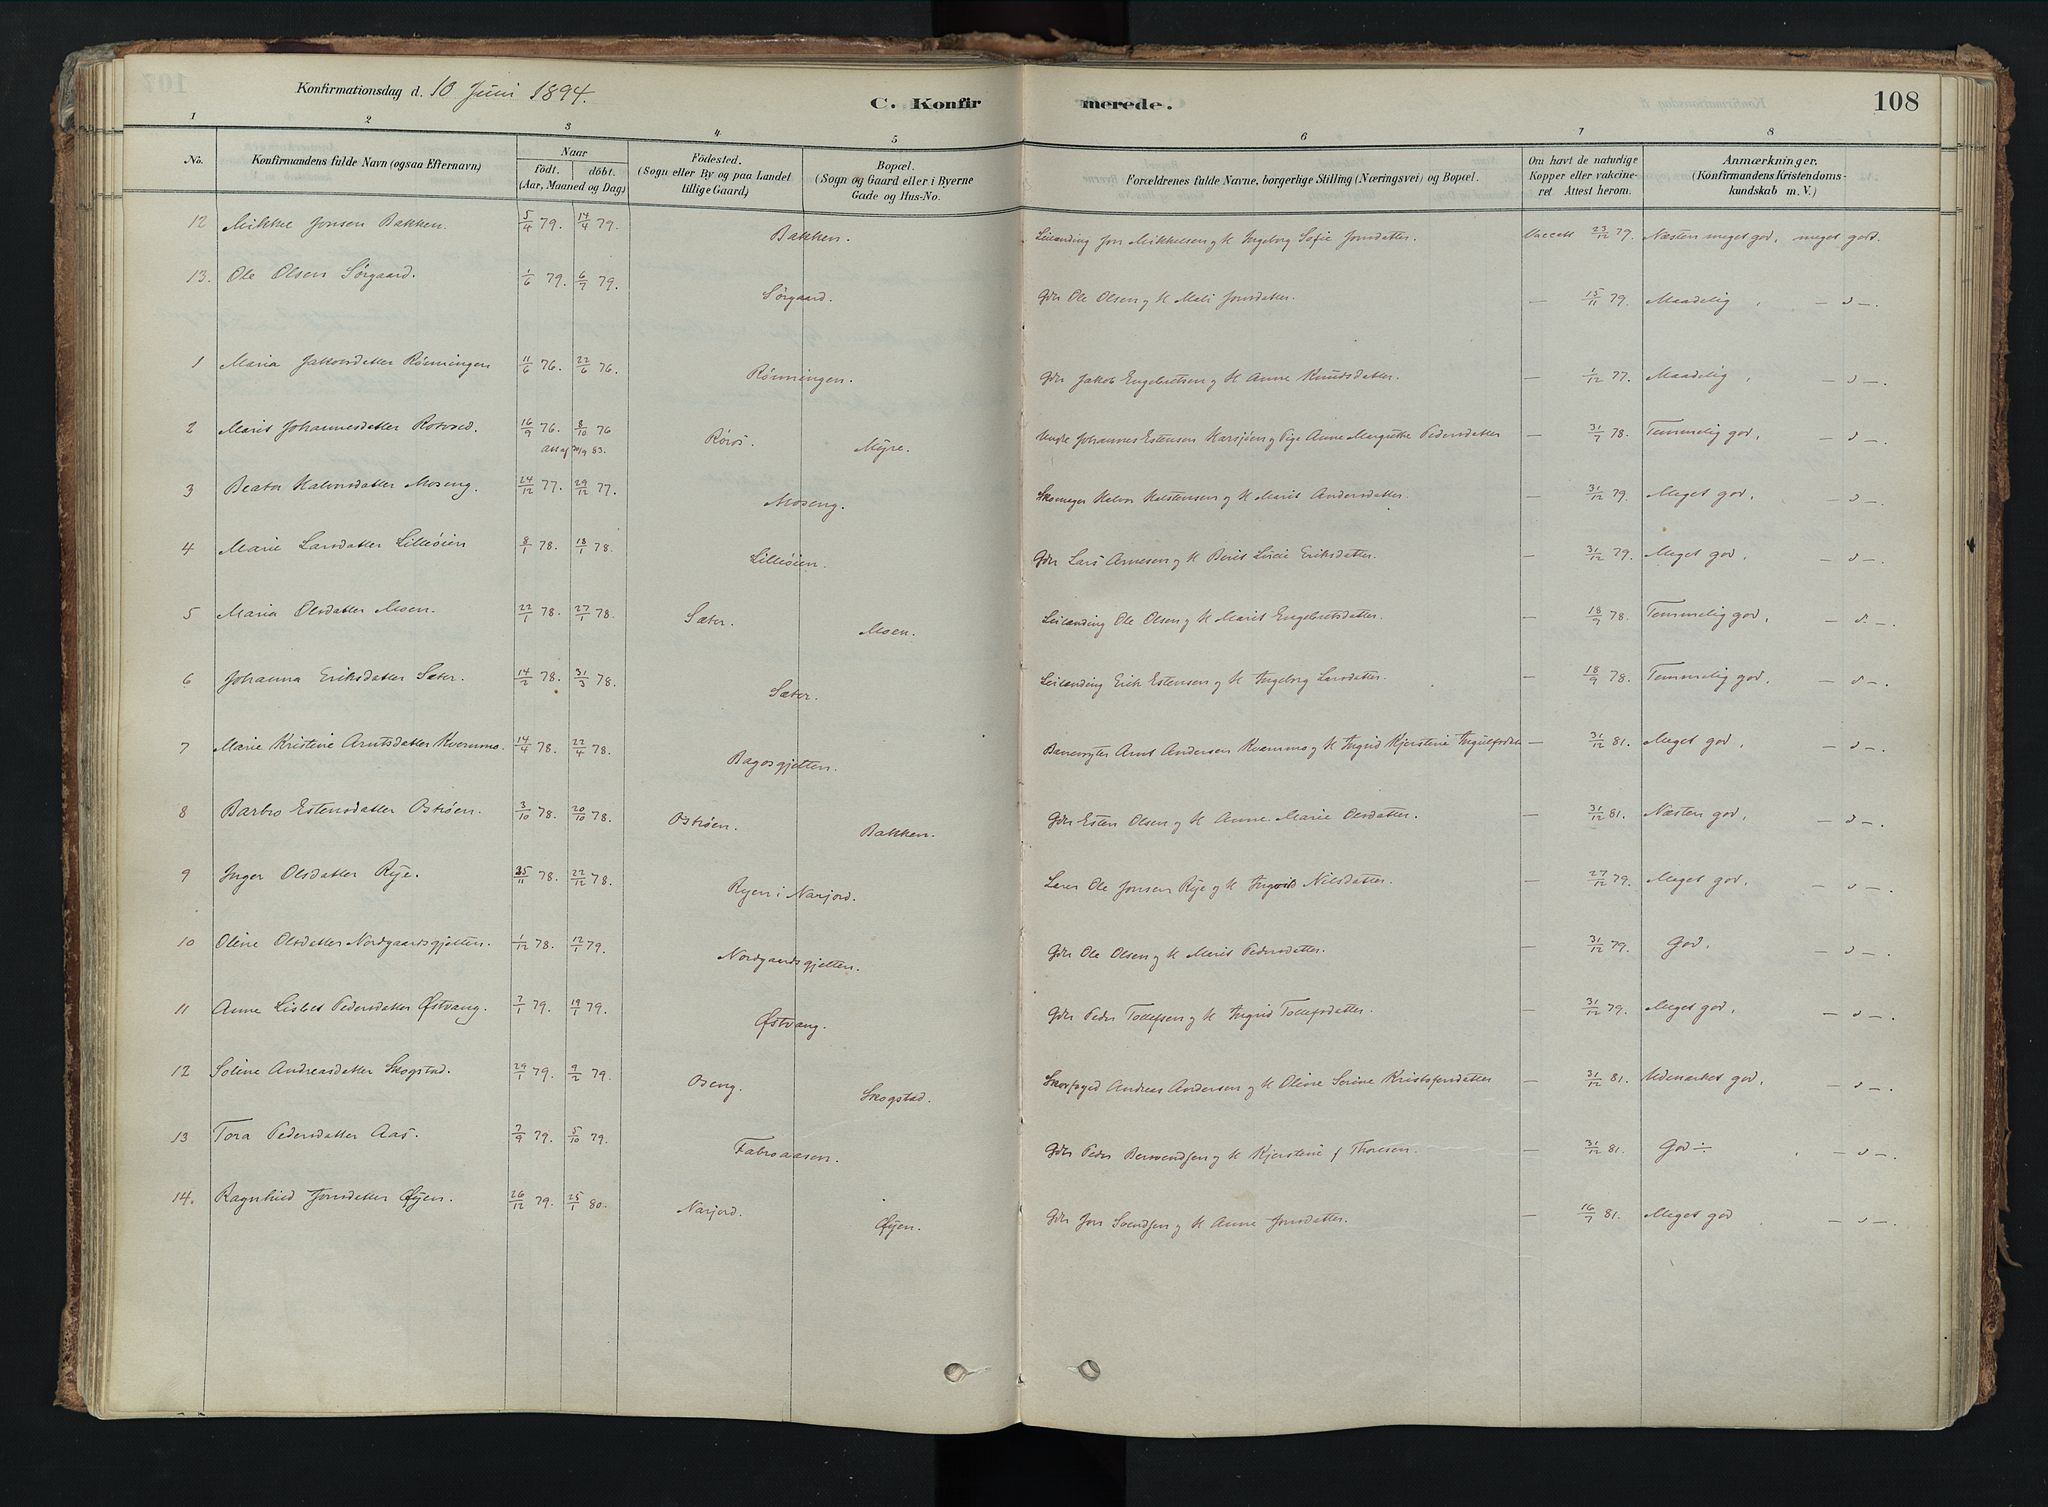 Konfirmationsdag d. 10 Juni 1894.
C. Konfirmerede.
108
1 2 3 4 5 6 7 8
No.
Konfirmandens fulde Navn (ogsaa Efternavn)
Naar
født. døbt.
(Aar, Maaned og Dag)
Födested.
(Sogn eller By og paa Landet
tillige Gaard)
Bopæl.
(Sogn og Gaard eller i Byerne
Gade og Hus-No.
Forældrenes fulde Navne, borgerlige Stilling (Næringsvei) og Bopæl.
Om havt de naturlige
Kopper eller vakcine-
ret Attest herom.
Anmærkninger.
(Konfirmandens Kristendoms-
kundskab m. V.)
12 Mikkel Jonsen Bakken. 5/4 79. 14/4 79. Bakken. Leilænding Jon Mikkelsen og K Ingeborg Sofie Jonsdatter. Vaccett 23/12 79. Næsten meget god, meget godt.
13. Ole Olsen Sørgaard. 1/6 79. 6/7 79. Sørgaard. Gdr Ole Olsen og K Mali Jonsdatter. — 15/11 79. Maadelig, — " —.
1 Maria Jakobsdatter Rønningen 11/6 76. 22/6 76. Rønningen. Gdr Jakob Engebretsen og K Anne Knudsdatter. — 1/12 77. Maadelig, — " —.
2 Marit Johannesdatter Rotvold. 16/9 76. 8/10 76 Røros Myre. Ungkr Johannes Estensen Karsjøen og Pige Anne Margrethe Pedersdatter — 31/7 78. Temmelig god, — " —.
Att af 20/9 83.
3 Beata Halvorsdatter Moseng. 24/12 77. 29/12 77. Moseng. Skomager Halvor Halstensen og K Marit Andersdatter. — 31/12 79. Meget god, — " —.
4 Marie Larsdatter Lilleøien 8/1 78. 18/1 78. Lilleøien. Gdr Lars Arnesen og K Berit Lucie Eriksdatter. — 31/12 79. Meget god, — " —.
5 Maria Olsdatter Moen. 22/1 78. 27/1 78. Sæter. Moen. Leilænding Ole Olsen og K Marit Engebretsdatter. — 18/9 78. Temmelig god, — " —.
6 Johanna Eriksdatter Sæter. 14/2 78. 31/3 78. Sæter. Leilænding Erik Estensen og K Ingeborg Larsdatter. — 18/9 78. Temmelig god, — " —.
7 Marie Kristine Arntsdatter Kvernmo. 14/4 78. 22/4 78. Bagosgjetten. Banevogter Arnt Andersen Kvernmo og K Ingrid Kjerstine Ingulfsdatr — 31/12 81. Meget god, — " —.
8 Barbro Estensdatter Ostrøen. 3/10 78. 20/10 78. Ostrøen. Bakken. Gdr Esten Olsen og K Anne Marie Olsdatter. — 31/12 81. Næsten god, — " —.
9 Inger Olsdatter Rye. 25/11 78. 22/12 78. Ryen i Narjord. Lærer Ole Jonsen Rye og K Ingrid Nilsdatter. — 27/12 79. Meget god, — " —.
10 Oline Olsdatter Nordgaardsgjetten. 1/12 78. 12/1 79. Nordgaardsgjetten. Gdr Ole Olsen og K Marit Pedersdatter. — 31/12 79. God, — " —.
11 Anne Lisbet Pedersdatter Østvang. 7/1 79. 19/1 79. Østvang. Gdr Peder Tollefsen og K Ingrid Tollefsdatter. — 31/12 79. Meget god, — " —.
12 Soline Andreasdatter Skogstad. 29/1 79. 9/2 79. Oseng. Skogstad. Skovfoged Andreas Andersen og K Oline Serine Kristofersdatter — 31/12 81. Udmærket god, — " —.
13 Tora Pedersdatter Aas. 7/9 79. 5/10 79. Fabroaasen. Gdr Peder Berntsen og K Kjerstine f Thoresen. — 31/12 81. God ÷, — " —.
14. Ragnhild Jonsdatter Øyen. 26/12 79. 25/1 80. Narjord. Øyen. Gdr Jon Svendsen og K Anne Jonsdatter. — 16/7 81. Meget god — " —.